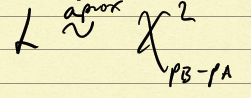 L aprox ~ χ² pB-pA